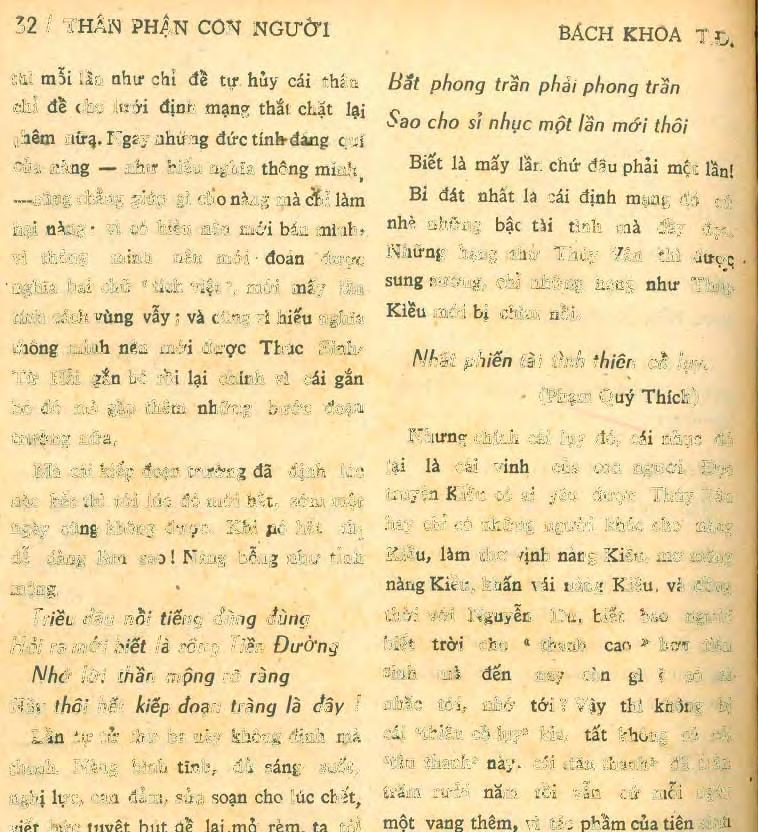 32 / THÂN PHẬN CON NGƯỜI
BÁCH KHOA T.Đ.
thì mỗi lần như chỉ để tự hủy cái thân
chỉ để cho lưới định mạng thắt chặt lại
thêm nữa. Ngay những đức tính đáng quí
của nàng — như hiếu nghĩa thông minh,
—cũng chẳng giúp gì cho nàng mà chỉ làm
hại nàng: vì có hiếu nên mới bán mình,
vì thông minh nên mới đoán được
nghĩa hai chữ "tích việt", mới mấy lần
tính cách vùng vẫy; và cũng vì hiếu nghĩa
thông minh nên mới được Thúc Sinh,
Từ Hải gắn bó rồi lại chính vì cái gắn
bó đó mà gặp thêm những bước đoạn
trường nữa.
Mà cái kiếp đoạn trường đã định lúc
nào hết thì tới lúc đó mới hết, sớm một
ngày cũng không được. Khi nó hết
dễ dàng làm sao! Nàng bỗng như tỉnh
mộng.
Triều đâu nổi tiếng đùng đùng
Hỏi ra mới biết là sông Tiền Đường
Nhớ lời thần mộng rõ ràng
Này thôi hết kiếp đoạn tràng là đây !
Lần tự tử thứ ba này không định mà
thành. Nàng bình tĩnh, đủ sáng suốt,
nghị lực, can đảm, sửa soạn cho lúc chết,
viết bức tuyệt bút để lại, mở rèm, ta
Bắt phong trần phải phong trần
Sao cho sỉ nhục một lần mới thôi
Biết là mấy lần chứ đâu phải một lần!
Bi đát nhất là cái định mạng đó cứ
nhè những bậc tài tình mà đầy đọa.
Những hạng như Thúy Vân thì được
sung sướng, chỉ những hạng như Thúy
Kiều mới bị chìm nổi.
Nhất phiến tài tình thiên cổ lụy.
(Phạm Quý Thích)
Nhưng chính cái lụy đó, cái nhục đó
lại là cái vinh của con người. Đọc
truyện Kiều có ai yêu được Thúy Vân
hay chỉ có những người khóc cho nàng
Kiều, làm thơ vịnh nàng Kiều, mơ mộng
nàng Kiều, khấn vái nàng Kiều. và đồng
thời với Nguyễn Du, biết bao người
biết trời cho " thanh cao " hơn tiên
sinh mà đến nay còn gì ? có ai
nhắc tới, nhớ tới ? Vậy thì không bị
cái "thiên cổ lụy" kia, tất không có cái
"tân thanh" này. cái "tân thanh" đã trên
trăm rưỡi năm rồi vẫn cứ mỗi ngày
một vang thêm, vì tác phẩm của tiên sinh